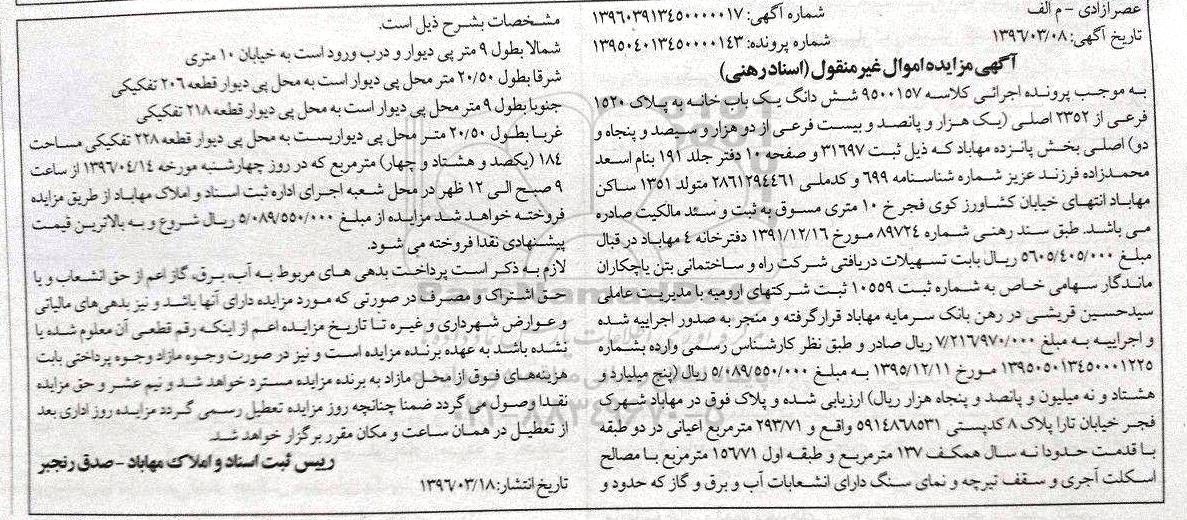 عصر آزادی - م الف
شماره آگهی: ۱۳۹۶۰۳۹۱۳۴۵۰۰۰۰۰۱۷
تاریخ آگهی: ۱۳۹۶/۰۳/۰۸
شماره پرونده: ۱۳۹۵۰۴۰۱۳۴۵۰۰۰۰۱۴۳
آگهی مزایده اموال غیر منقول (اسناد رهنی)
به موجب پرونده اجرائی کلاسه ۹۵۰۰۱۵۷ شش دانگ یک باب خانه به پلاک ۱۵۲۰
فرعی از ۲۳۵۲ اصلی (یک هزار و پانصد و بیست فرعی از دو هزار و سیصد و پنجاه و
دو) اصلی بخش پانزده مهاباد که ذیل ثبت ۳۱۶۹۷ و صفحه ۱۰ دفتر جلد ۱۹۱ بنام اسعد
محمدزاده فرزند عزیز شماره شناسنامه ۶۹۹ و کدملی ۲۸۶۱۲۹۴۴۶۱ متولد ۱۳۵۱ ساکن
مهاباد انتهای خیابان کشاورز کوی فجر خ ۱۰ متری مسوق به ثبت و سند مالکیت صادره
می باشد. طبق سند رهنی شماره ۸۹۷۲۴ مورخ ۱۳۹۱/۱۲/۱۶ دفترخانه ۴ مهاباد در قبال
مبلغ ۵۶۰۵/۴۰۵/۰۰۰ ریال بابت تسهیلات دریافتی شرکت راه و ساختمانی بتن پاچکاران
ماندگار سهامی خاص به شماره ثبت ۱۰۵۵۹ ثبت شرکتهای ارومیه با مدیریت عاملی
سیدحسین قریشی در رهن بانک سرمایه مهاباد قرار گرفته و منجر به صدور اجراییه شده
و اجراییه به مبلغ ۷/۲۱۶/۹۷۰/۰۰۰ ریال صادر و طبق نظر کارشناس رسمی وارده بشماره
۱۳۹۵۰۵۰۱۳۴۵۰۰۰۱۲۲۵ مورخ ۱۳۹۵/۱۲/۱۱ به مبلغ ۵/۰۸۹/۵۵۰/۰۰۰ ریال (پنج میلیارد و
هشتاد و نه میلیون و پانصد و پنجاه هزار ریال) ارزیابی شده و پلاک فوق در مهاباد شهرک
فجر خیابان تارا پلاک ۸ کدپستی ۵۹۱۴۸۶۸۵۳۱ واقع و ۲۹۳/۷۱ مترمربع اعیانی در دو طبقه
با قدمت حدودا نه سال همکف ۱۳۷ مترمربع و طبقه اول ۱۵۶۷۱ مترمربع با مصالح
اسکلت آجری و سقف تیرچه و نمای سنگ دارای انشعابات آب و برق و گاز که حدود و
مشخصات بشرح ذیل است.
شمالا بطول ۹ متر پی دیوار و درب ورود است به خیابان ۱۰ متری
شرقا بطول ۲۰/۵۰ متر محل پی دیوار است به محل پی دیوار قطعه ۲۰۶ تفکیکی
جنوبا بطول ۹ متر محل پی دیوار است به محل پی دیوار قطعه ۲۱۸ تفکیکی
غربا بطول ۲۰/۵۰ متر محل پی دیواریست به محل پی دیوار قطعه ۲۲۸ تفکیکی مساحت
۱۸۴ (یکصد و هشتاد و چهار) مترمربع که در روز چهارشنبه مورخه ۱۳۹۶/۰۴/۱۴ از ساعت
۹ صبح الی ۱۲ ظهر در محل شعبه اجرای اداره ثبت اسناد و املاک مهاباد از طریق مزایده
فروخته خواهد شد مزایده از مبلغ ۵/۰۸۹/۵۵۰/۰۰۰ ریال شروع و به بالاترین قیمت
پیشنهادی نقدا فروخته می شود.
لازم به ذکر است پرداخت بدهی های مربوط به آب، برق، گاز اعم از حق انشعاب و یا
حق اشتراک و مصرف در صورتی که مورد مزایده دارای آنها باشد و نیز بدهی های مالیاتی
و عوارض شهرداری و غیره تا تاریخ مزایده اعم از اینکه رقم قطعی آن معلوم شده یا
نشده باشد به عهده برنده مزایده است و نیز در صورت وجوه مازاد وجوه پرداختی بابت
هزینه‌های فوق از محل مازاد به برنده مزایده مسترد خواهد شد و نیم عشر و حق مزایده
نقدا وصول می گردد ضمنا چنانچه روز مزایده تعطیل رسمی گردد مزایده روز اداری بعد
از تعطیل در همان ساعت و مکان مقرر برگزار خواهد شد.
رییس ثبت اسناد و املاک مهاباد - صدق رنجبر
تاریخ انتشار: ۱۳۹۶/۰۳/۱۸